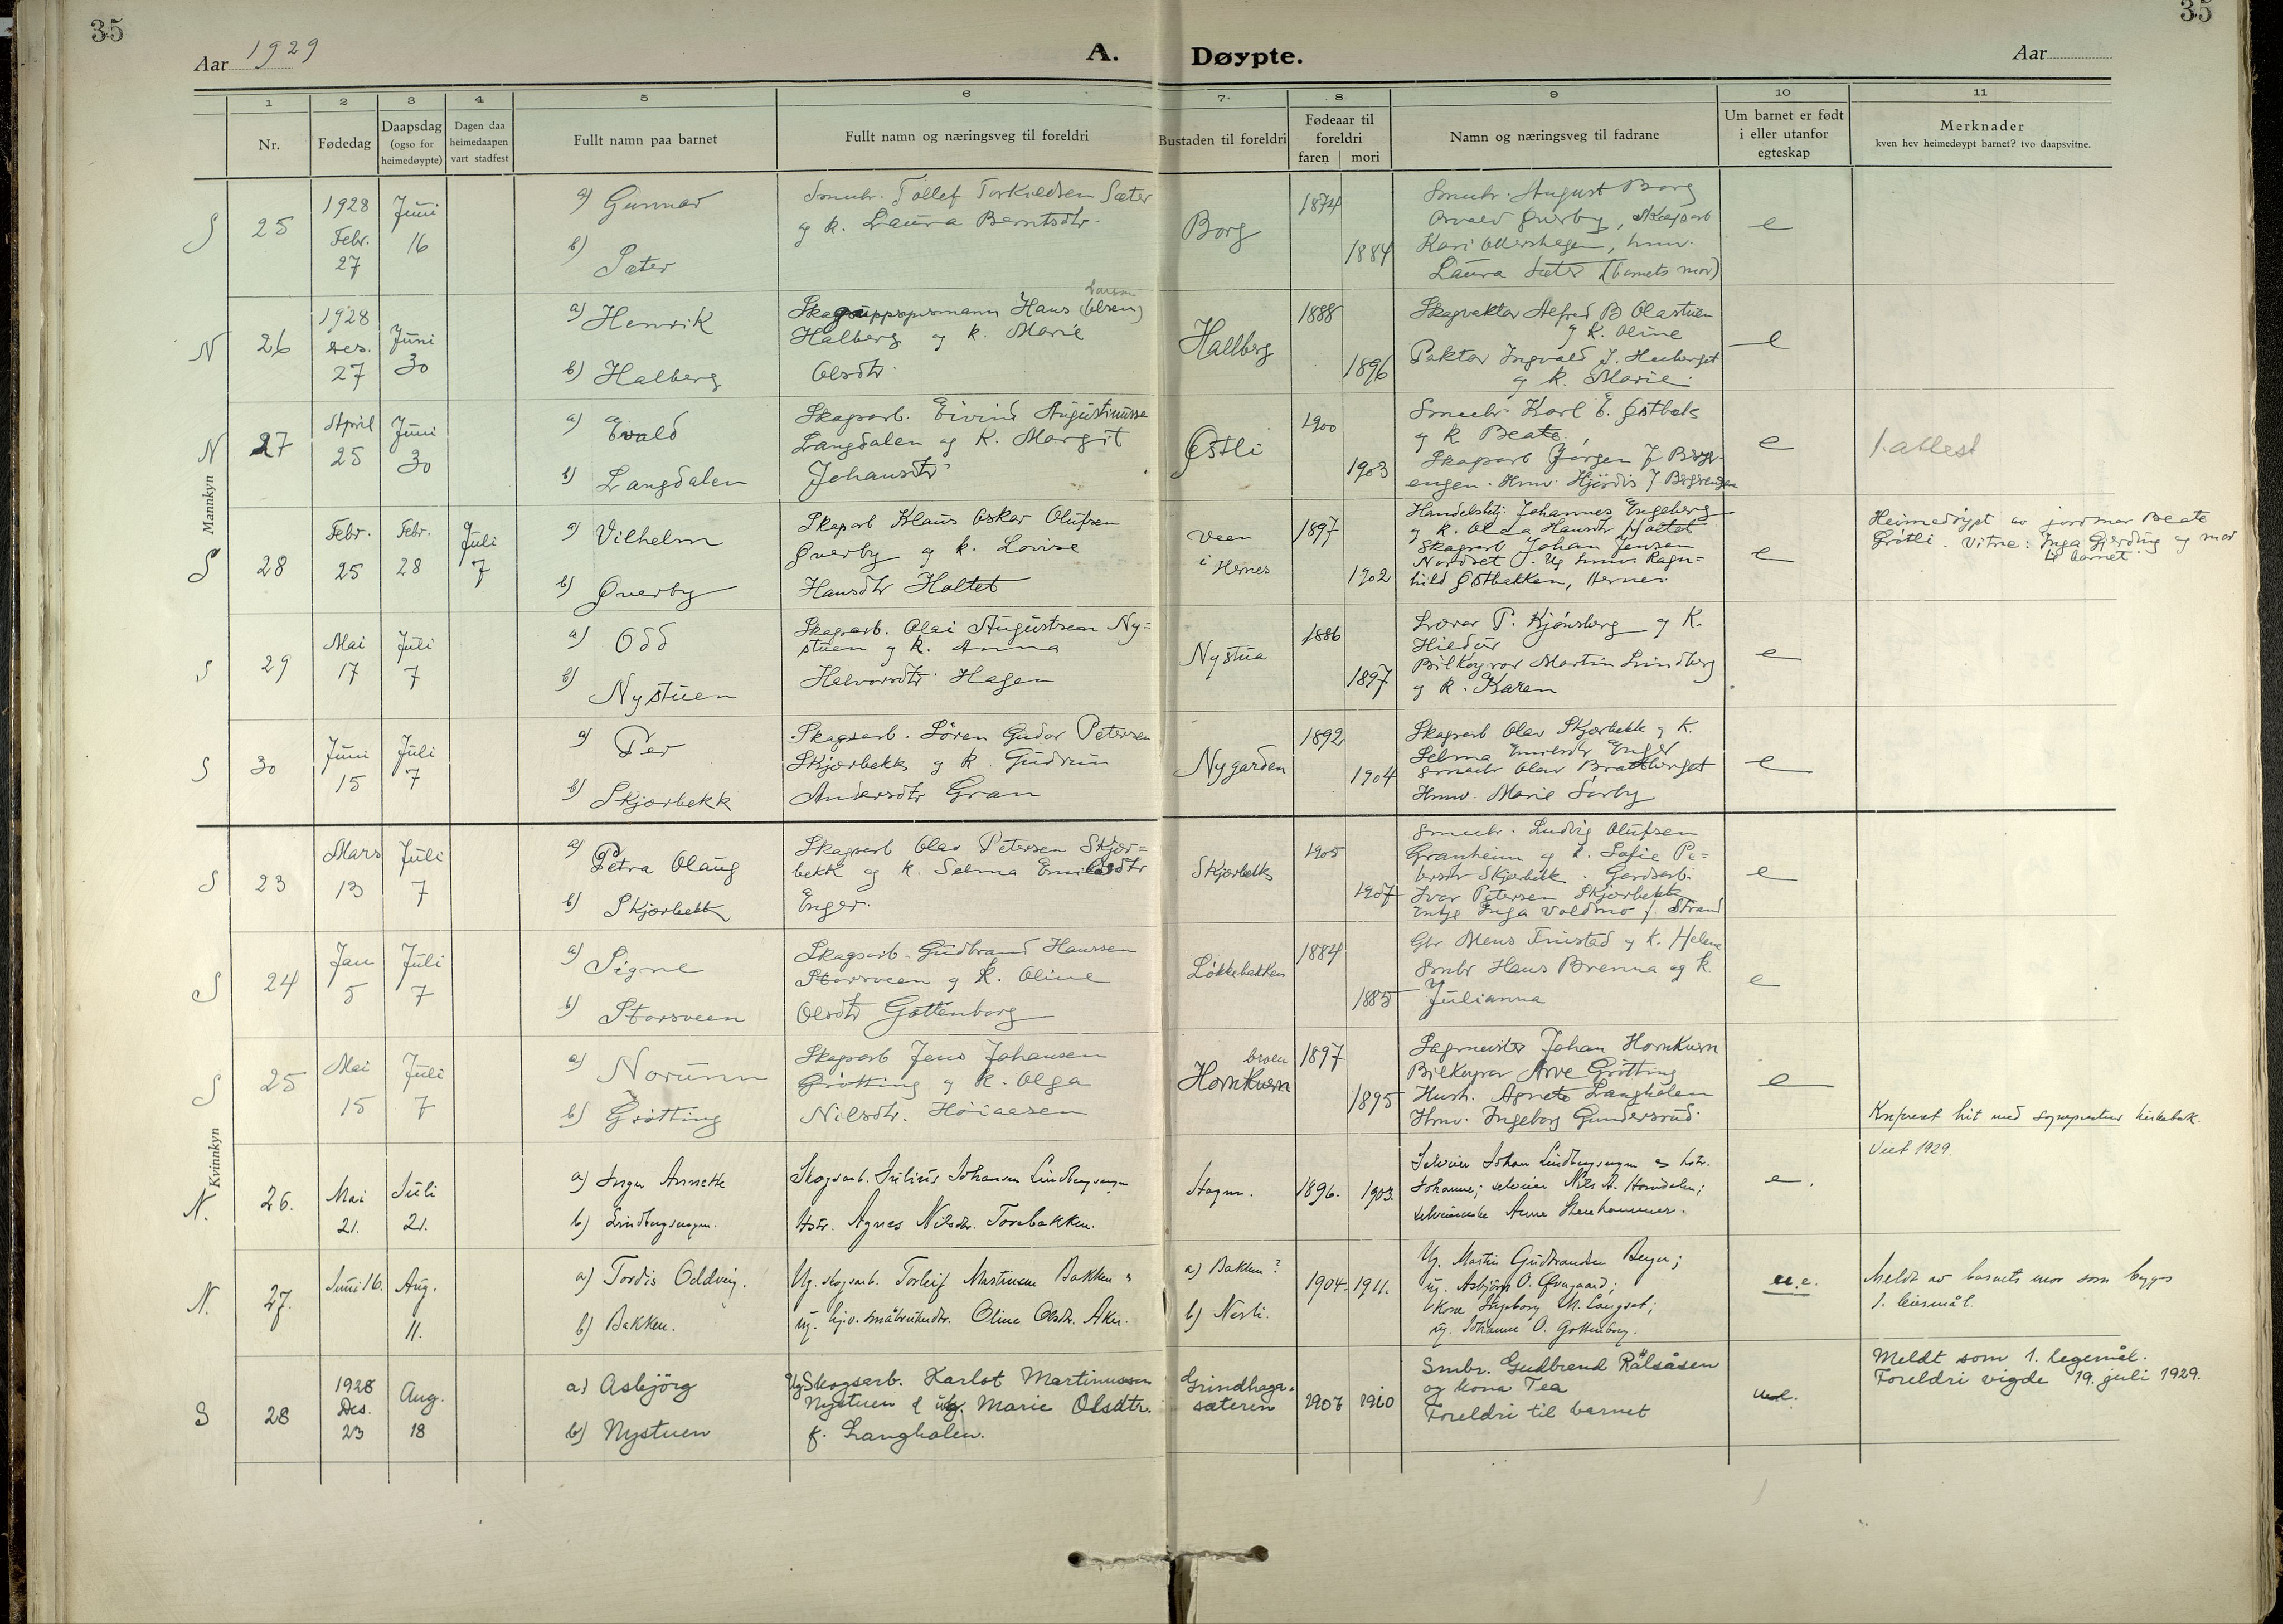 35
35
Aar 1929
A. Døypte.
Aar
1 2 3 4 5 6 7. 8 9 10 11
Nr.
Fødedag
Daapsdag
(ogso for
heimedøypte)
Dagen daa
heimedaapen
vart stadfest
Fullt namn paa barnet
Fullt namn og næringsveg til foreldri
Bustaden til foreldri
Fødeaar til
foreldri
faren mori
Namn og næringsveg til fadrane
Um barnet er født
i eller utanfor
egteskap
Merknader
kven hev heimedøypt barnet? tvo daapsvitne.
Mannkyn
S 25
1928
Febr.
27
Juni
16
a) Gunnar
b) Sæter
Smubr. Tollef Torkildsen Sæter
og k. Laura Berntsdtr.
Borg
1874
1884
Smubr. August Borg
Osvald Øverby, Skogsarb
Kari Ottershagen, hmv.
Laura Sæter (barnets mor)
e
N 26
1928
Des.
27
Juni
30
a) Henrik
b) Halberg
Hans (Olsen)
Halberg og k. Marie
Olsdtr.
Hallberg
1888
1896
Skogvaktar Alfred B Olastuen
og k. Oline
Ingvald J.
og k. Marie.
e
N 27
April
25
Juni
30
a) Evald
b) Langdalen
Skogsarb. Eivind Augustinussen
Langdalen og k. Margit
Johansdtr
Østli
1900
1903
Smubr Karl E. Østbek
og k Beate,
Skogsarb Jørgen J
engen. Hmv. Hjørdis J
e
1. attest
S 28
Febr.
25
Febr.
28
Juli
7
a) Vilhelm
b) Øverby
Skogsarb Klaus Oskar Olufsen
Øverby og k. Lovise
Hansdtr Holtet
Veen
i Hernes
1897
1902
Handelsbtj. Johannes Engeberg
og k. Olea Hansdtr Holtet
Skogsarb Johan Jensen
Nordset S. Ug hmv. Ragn=
hild Østbakken, Hernes.
e
Heimedøypt av jormor Beate
Grøtli. Vitne: Inga Gjerding og mor
til barnet
S 29
Mai
17
Juli
7
a) Odd
b) Nystuen
Skogsarb. Olai Augustsen Ny=
stuen og k. Anna
Halvorsdtr. Hagen
Nystua
1886
1897
Lærar P. Kjønsberg og k.
Hildur
Bilkøyrar Martin Lindberg
og k. Karen
e
S 30
Juni
15
Juli
7
a) Per
b) Skjærbekk
Skogsarb. Søren Gudor Petersen
Skjærbekk og k. Gudrun
Andersdtr Gran
Nygarden
1892
1904
Skogsarb Olav Skjærbekk og k.
Selma Emilsdtr Enger
Smaabr Olav Bratberget
Hmv. Marie Sørby
e
Kvinnkyn
S 23
Mars
13
Juli
7
a) Petra Olaug
b) Skjærbekk
Skogsarb Olav Petersen Skjær=
bekk og k. Selma Emilsdtr
Enger.
Skjærbekk
1905
1907
Smubr. Ludvig Olufsen
Granheim og k. Sofie Pe=
tersdtr Skjærbekk. Gardsarb.
Ivar Petersen Skjærbekk
Enkje Inga Voldmo f. Strand
e
S 24
Jan
5
Juli
7
a) Signe
b) Storsveen
Skogsarb. Gudbrand Hanssen
Storsveen og k. Oline
Olsdtr Gøttenborg
Løkkebakken
1884
1885
Gbr Mens Trustad og k. Helene
Smbr Hans Brenna og k.
Julianna
e
S 25
Mai
15
Juli
7
a) Norunn
b) Grøtting
Skogsarb Jens Johansen
Grøtting og k. Olga
Nilsdtr. Høiaasen
broen
Hornkvern
1897
1895
Sagmeister Johan Hornkvern
Bilkøyrar Arve Grøtting
Hustr. Agnete Langholen
Hmv. Ingeborg Gundersrud
e
hit med
1929.
N. 26.
Mai
21.
Juli
21.
a) Inger Annette
b) Lindbergsengen.
Skogsarb. Julius Johansen Lindbergsengen
Hstr. Agnes Nilsdtr. Torebakken.
Stagm.
1896. 1903.
Selveier Johan Lindbergsengen og hstr.
Johanne; selveier Nils A.
selveierenke Anne Stenhammer.
e.
N. 27.
Juni 16.
Aug.
11.
a) Tordis Oddveig.
b) Bakken.
Ug. skogsarb. Torleif Martinsen Bakken
ug. hj.v. småbrukerdtr. Oline Olsdtr. Aken.
a) Bakken?
b) Nerli.
1904- 1911.
Ug. Martin Gudbrandsen Berger;
ug. Asbjørn O. Øvergaard;
kona Ingeborg M. Langset;
ug. Johanne O. Gottenborg.
u.e.
Meldt av barnets mor som
1. leiermål.
S 28
1928
Des.
23
Aug.
18
a) Asbjörg
b) Nystuen
Ug Skogsarb. Karlot Martinussen
Nystuen & ug. Marie Olsdtr.
f. Langholen.
Grindhaga-
sæteren
1907 1910
Smbr. Gudbrand Rålsåsen
og kona Tea
Foreldri til barnet
u.e.
Meldt som 1. legemål.
Foreldri vigde 19. juli 1929.